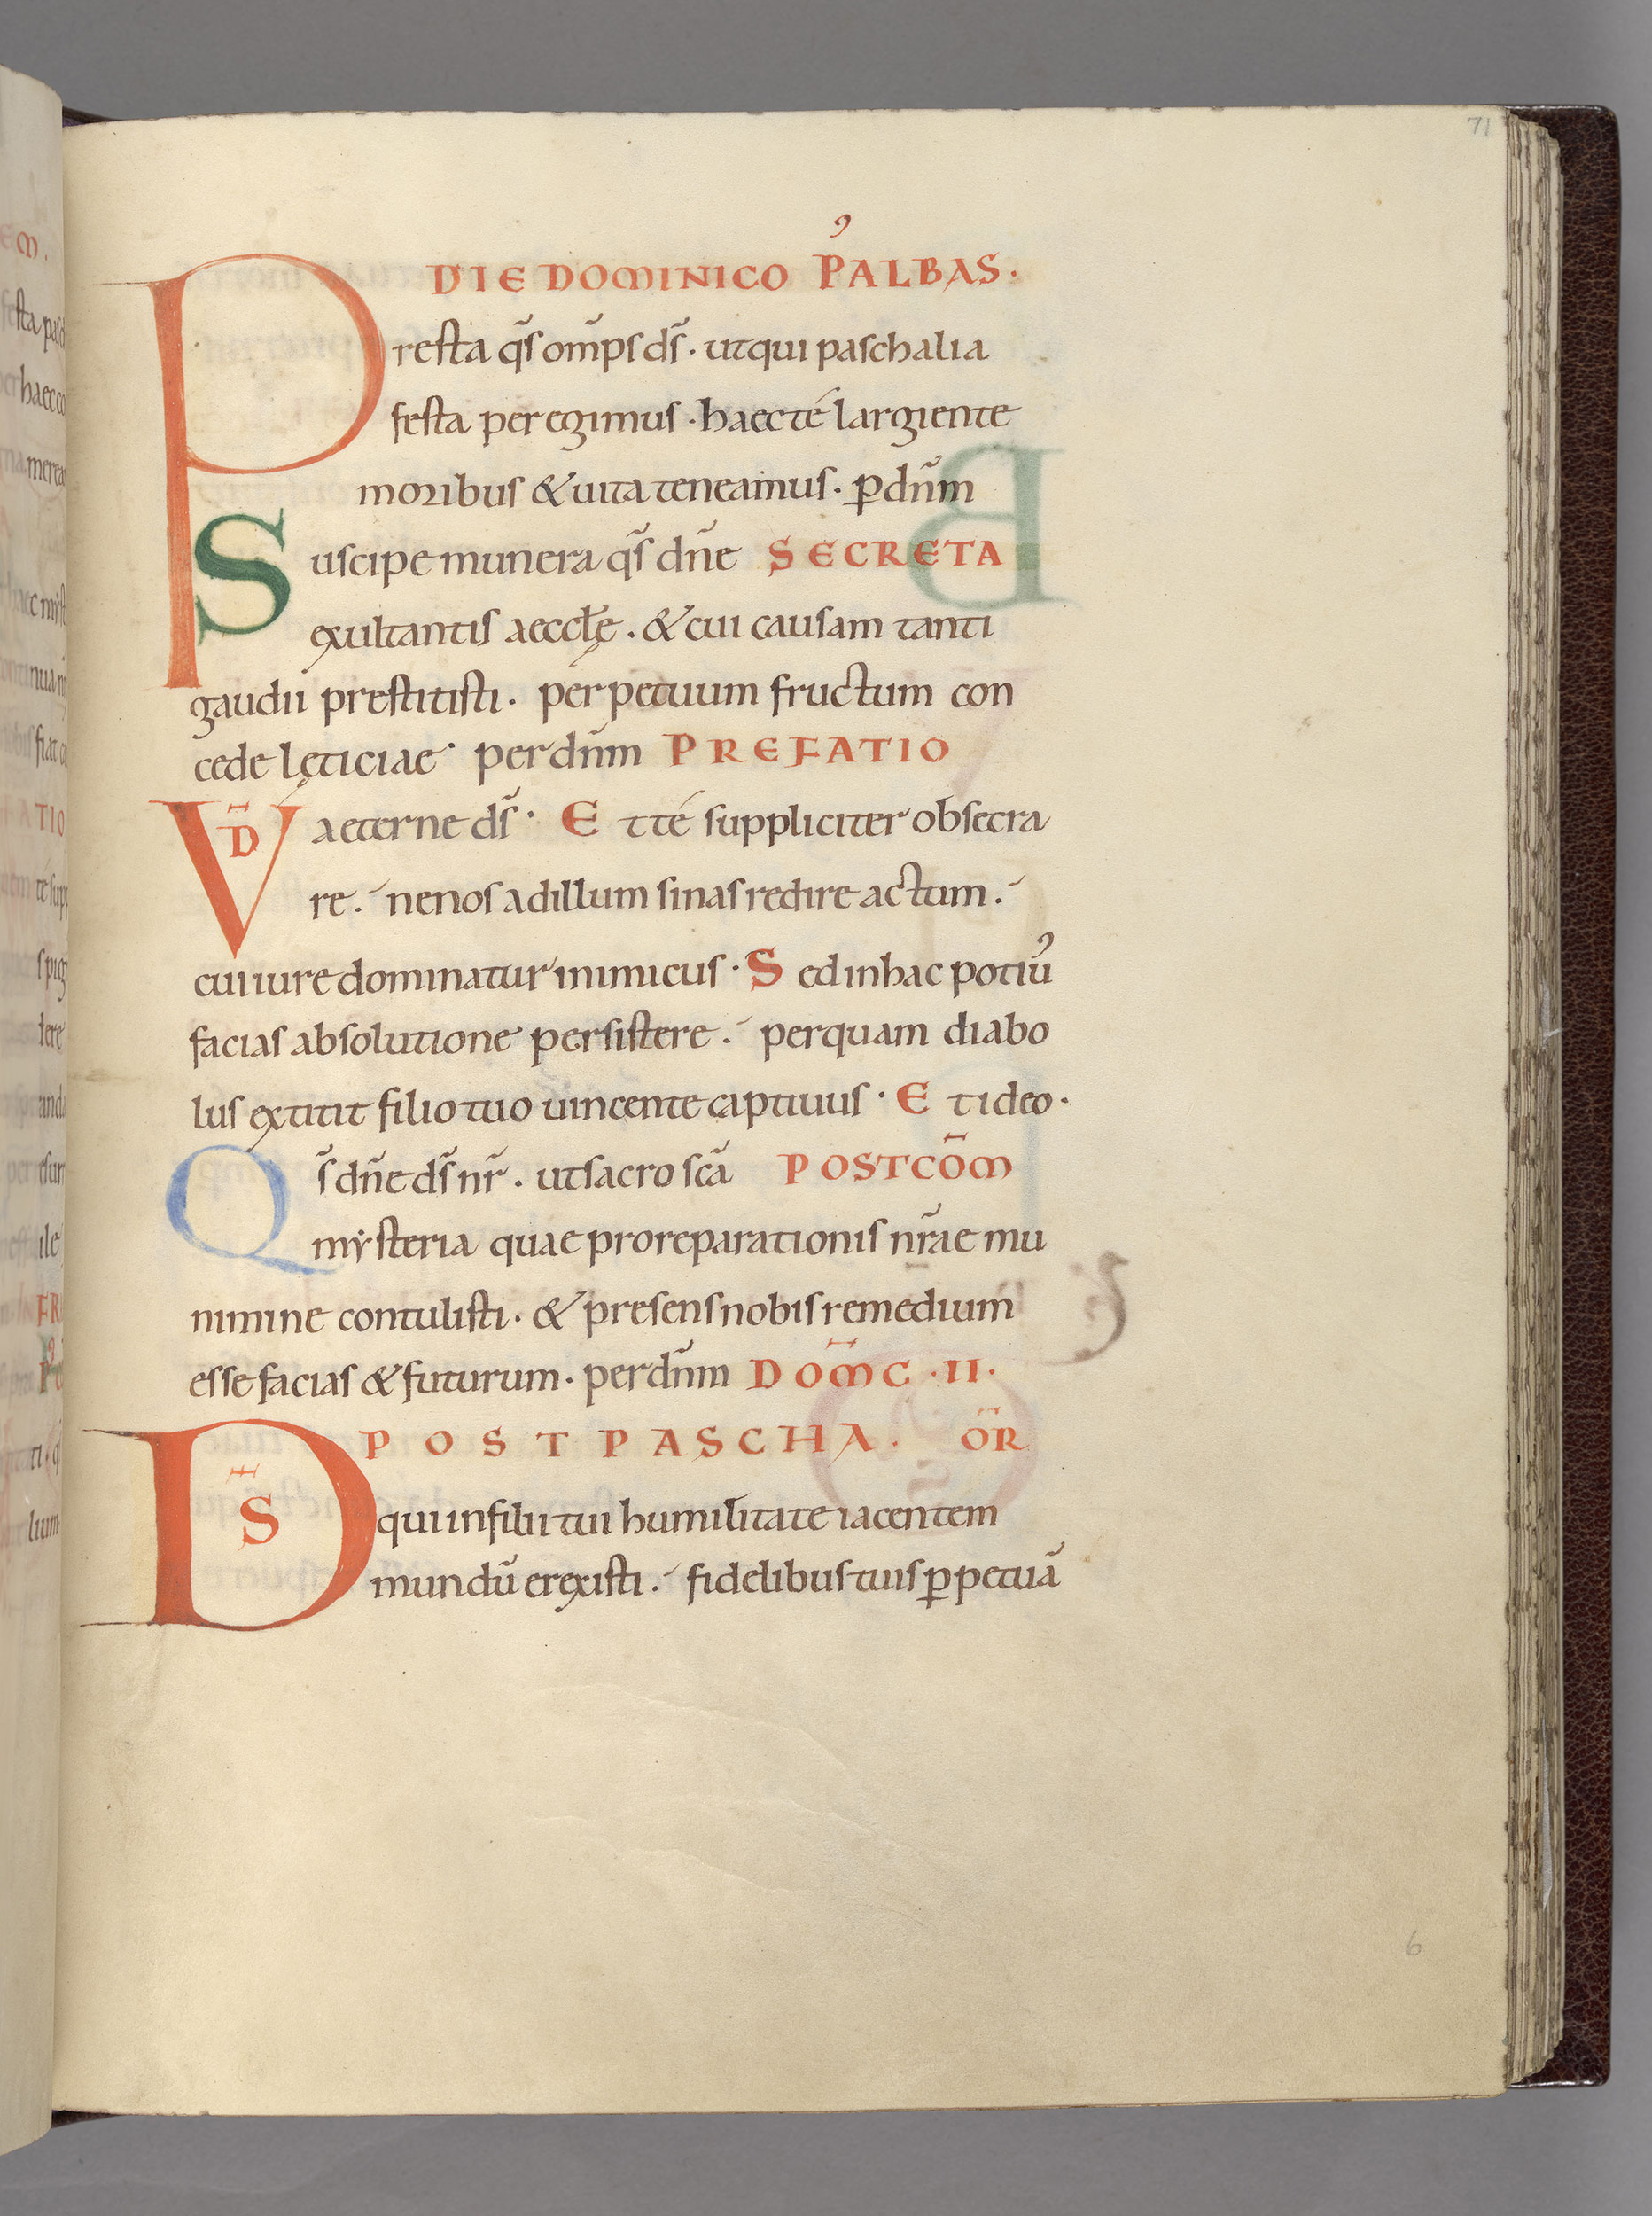 71
DIE DOMINICO P᷒ ALBAS.
Presta q̄s om̄ps d̄s· ut qui paschalia
festa peregimus· haec té largiente
moribus & uita teneamus· ꝑ dn̄m
Suscipe munera q̄s dn̄e SECRETA
exultantis aeccl̄ę· & cui causam tanti
gaudii prestitisti· perpetuum fructum con
cede lęticiae· per dn̄m PREFATIO
VD̄ aeterne d̄s· Et té suppliciter obsecra
re· ne nos ad illum sinas redire actum·
cui iure dominatur inimicus· Sed in hac potiu᷒
facias absolutione persistere· per quam diabo
lus extitit filio tuo uincente captiuus· Et ideo·
Qs̄ dn̄e d̄s nr̄· ut sacro sc̄ā POSTCOM̄
mysteria quae pro reparationis nr̄ae mu
nimine contulisti· & presens nobis remedium
esse facias & futurum· per dn̄m DOM̄C·II·
POST PASCHA· OR̄
DS̄ qui in filii tui humilitate iacentem
mundū erexisti· fidelibus tuis ꝑpetuā
6